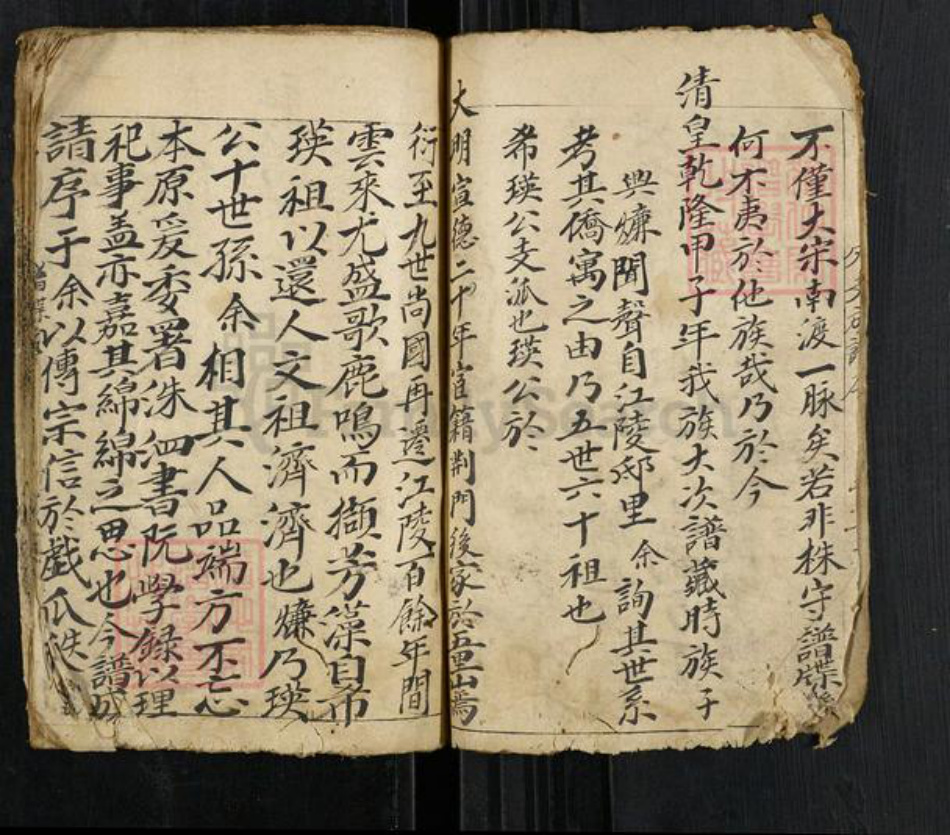 不僅大宋南渡一脉矣若非株守譜牒
何不夷於他族哉乃於今
清皇乾隆甲子年我族大次譜藏時族子
興爌聞聲自江陵邸里余詢其世系
考其僑寓之由乃五世六十祖也
希瑛公支派也瑛公於
大明宣德二十年官籍荆門後家於五里山焉
衍至九世尚國再遷江陵百餘年間
雲來尤盛歌鹿鳴而擷芳藻自希
瑛祖以還人文祖濟濟也爌乃瑛
公十世孫余相其人品端方不忘
本原爰委署洙泗書院學録以理
祀事盖亦嘉其綿綿之思也今譜成
請序于余以傳宗信於戲瓜迭
FamilySearch